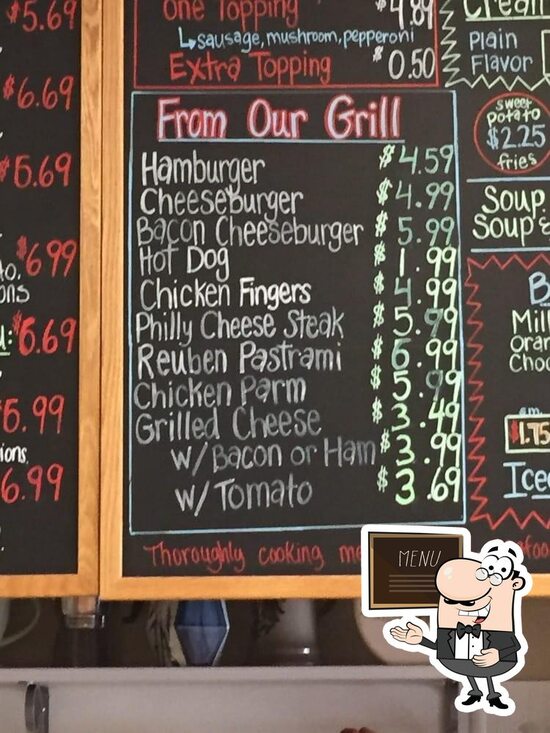 $5.69
$6.69
$5.69
$6.99
to.
ons
$6.69
$5.99
ions,
$6.99
One Topping $4.89
↳sausage, mushroom, pepperoni
Extra Topping $0.50
From Our Grill
Hamburger $4.59
Cheeseburger $4.99
Bacon Cheeseburger $5.99
Hot Dog $1.99
Chicken Fingers $4.99
Philly Cheese Steak $5.99
Reuben Pastrami $6.99
Chicken Parm $5.99
Grilled Cheese $3.49
w/Bacon or Ham $3.99
w/Tomato $3.69
Thoroughly cooking me
Plain
Flavor
sweet
potato
$2.25
fries
Soup
Soup
B
Mil
Oran
Choc
$1.75
Iced
MENU